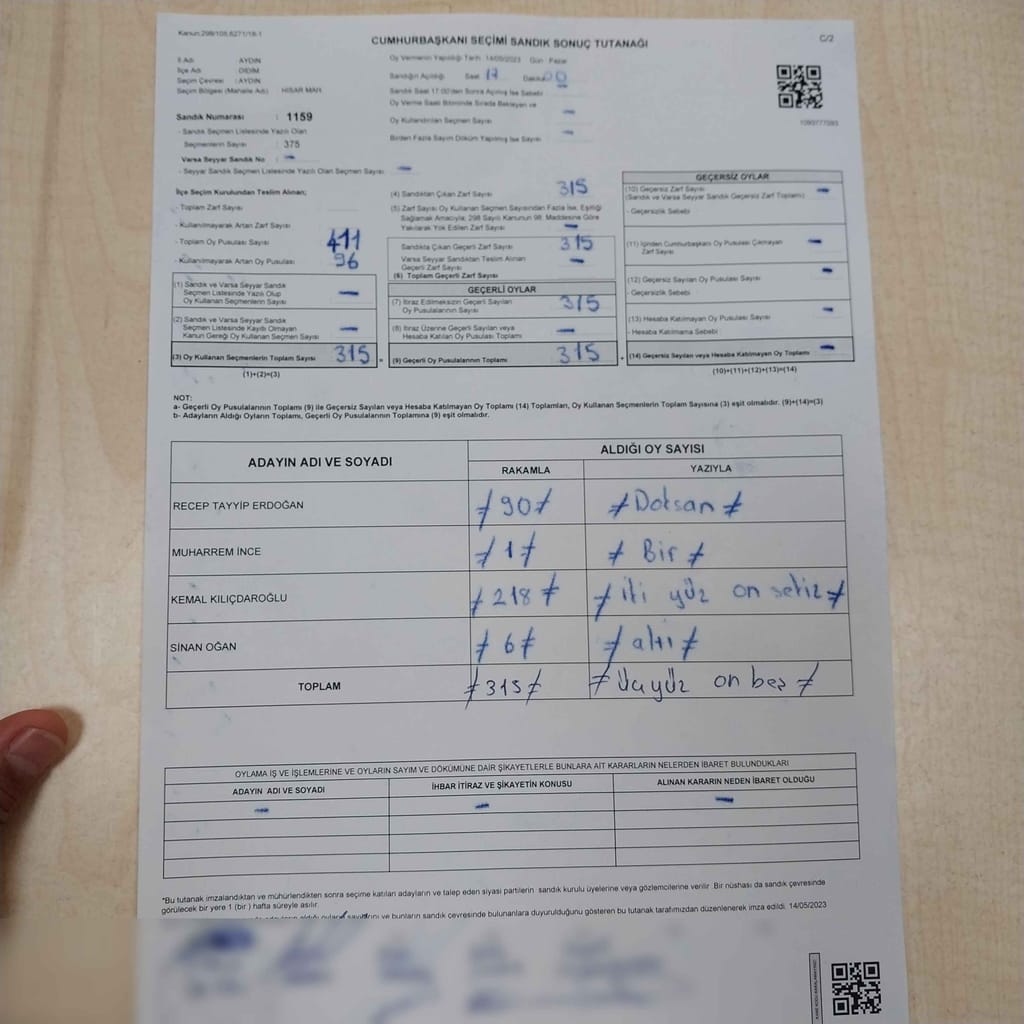 Kanun:298/105,6271/18-1
C/2
CUMHURBAŞKANI SEÇİMİ SANDIK SONUÇ TUTANAĞI
İl Adı : AYDIN
İlçe Adı : DİDİM
Seçim Çevresi : AYDIN
Seçim Bölgesi (Mahalle Adı) HİSAR MAH.
Sandık Numarası : 1159
- Sandık Seçmen Listesinde Yazılı Olan
Seçmenlerin Sayısı : 375
Varsa Seyyar Sandık No : -
- Seyyar Sandık Seçmen Listesinde Yazılı Olan Seçmen Sayısı: -
Oy Vermenin Yapıldığı Tarih :14/05/2023 Gün : Pazar
Sandığın Açıldığı Saat 17 Dakika 00
Sandık Saat 17.00'den Sonra Açılmış İse Sebebi
Oy Verme Saati Bitiminde Sırada Bekleyen ve
Oy Kullandırılan Seçmen Sayısı -
Birden Fazla Sayım Döküm Yapılmış İse Sayısı -
İlçe Seçim Kurulundan Teslim Alınan;
- Toplam Zarf Sayısı
- Kullanılmayarak Artan Zarf Sayısı
- Toplam Oy Pusulası Sayısı 411
- Kullanılmayarak Artan Oy Pusulası 96
(1) Sandık ve Varsa Seyyar Sandık
Seçmen Listesinde Yazılı Olup
Oy Kullanan Seçmenlerin Sayısı -
(2) Sandık ve Varsa Seyyar Sandık
Seçmen Listesinde Kayıtlı Olmayan
Kanun Gereği Oy Kullanan Seçmen Sayısı -
(3) Oy Kullanan Seçmenlerin Toplam Sayısı 315 =
(1)+(2)=(3)
(4) Sandıktan Çıkan Zarf Sayısı 315
(5) Zarf Sayısı Oy Kullanan Seçmen Sayısından Fazla İse, Eşitliği
Sağlamak Amacıyla; 298 Sayılı Kanunun 98. Maddesine Göre
Yakılarak Yok Edilen Zarf Sayısı -
Sandıkta Çıkan Geçerli Zarf Sayısı 315
Varsa Seyyar Sandıktan Teslim Alınan
Geçerli Zarf Sayısı -
(6) Toplam Geçerli Zarf Sayısı
GEÇERLİ OYLAR
(7) İtiraz Edilmeksizin Geçerli Sayılan
Oy Pusulalarının Sayısı 315
(8) İtiraz Üzerine Geçerli Sayılan veya
Hesaba Katılan Oy Pusulası Sayısı -
(9) Geçerli Oy Pusulalarının Toplamı 315 +
GEÇERSİZ OYLAR
(10) Geçersiz Zarf Sayısı -
(Sandık ve Varsa Seyyar Sandık Geçersiz Zarf Toplamı)
- Geçersizlik Sebebi
(11) İçinden Cumhurbaşkanı Oy Pusulası Çıkmayan
Zarf Sayısı -
(12) Geçersiz Sayılan Oy Pusulası Sayısı -
- Geçersizlik Sebebi
(13) Hesaba Katılmayan Oy Pusulası Sayısı -
- Hesaba Katılmama Sebebi
(14) Geçersiz Sayılan veya Hesaba Katılmayan Oy Toplamı -
(10)+(11)+(12)+(13)=(14)
NOT:
a- Geçerli Oy Pusulalarının Toplamı (9) ile Geçersiz Sayılan veya Hesaba Katılmayan Oy Toplamı (14) Toplamları, Oy Kullanan Seçmenlerin Toplam Sayısına (3) eşit olmalıdır. (9)+(14)=(3)
b- Adayların Aldığı Oyların Toplamı, Geçerli Oy Pusulalarının Toplamına (9) eşit olmalıdır.
ADAYIN ADI VE SOYADI
ALDIĞI OY SAYISI
RAKAMLA YAZIYLA
RECEP TAYYİP ERDOĞAN ≠90≠ ≠Doksan≠
MUHARREM İNCE ≠1≠ ≠Bir≠
KEMAL KILIÇDAROĞLU ≠218≠ ≠iki yüz on sekiz≠
SİNAN OĞAN ≠6≠ ≠altı≠
TOPLAM ≠315≠ ≠üçyüz on beş≠
OYLAMA İŞ VE İŞLEMLERİNE VE OYLARIN SAYIM VE DÖKÜMÜNE DAİR ŞİKAYETLERLE BUNLARA AİT KARARLARIN NELERDEN İBARET BULUNDUKLARI
ADAYIN ADI VE SOYADI
İHBAR İTİRAZ VE ŞİKAYETİN KONUSU
ALINAN KARARIN NEDEN İBARET OLDUĞU
- - -
*Bu tutanak imzalandıktan ve mühürlendikten sonra seçime katılan adayların ve talep eden siyasi partilerin sandık kurulu üyelerine veya gözlemcilerine verilir. Bir nüshası da sandık çevresinde
görülecek bir yere 1 (bir ) hafta süreyle asılır.
adayların aldığı oyların sayısını ve bunların sandık çevresinde bulunanlara duyurulduğunu gösteren bu tutanak tarafımızdan düzenlenerek imza edildi. 14/05/2023